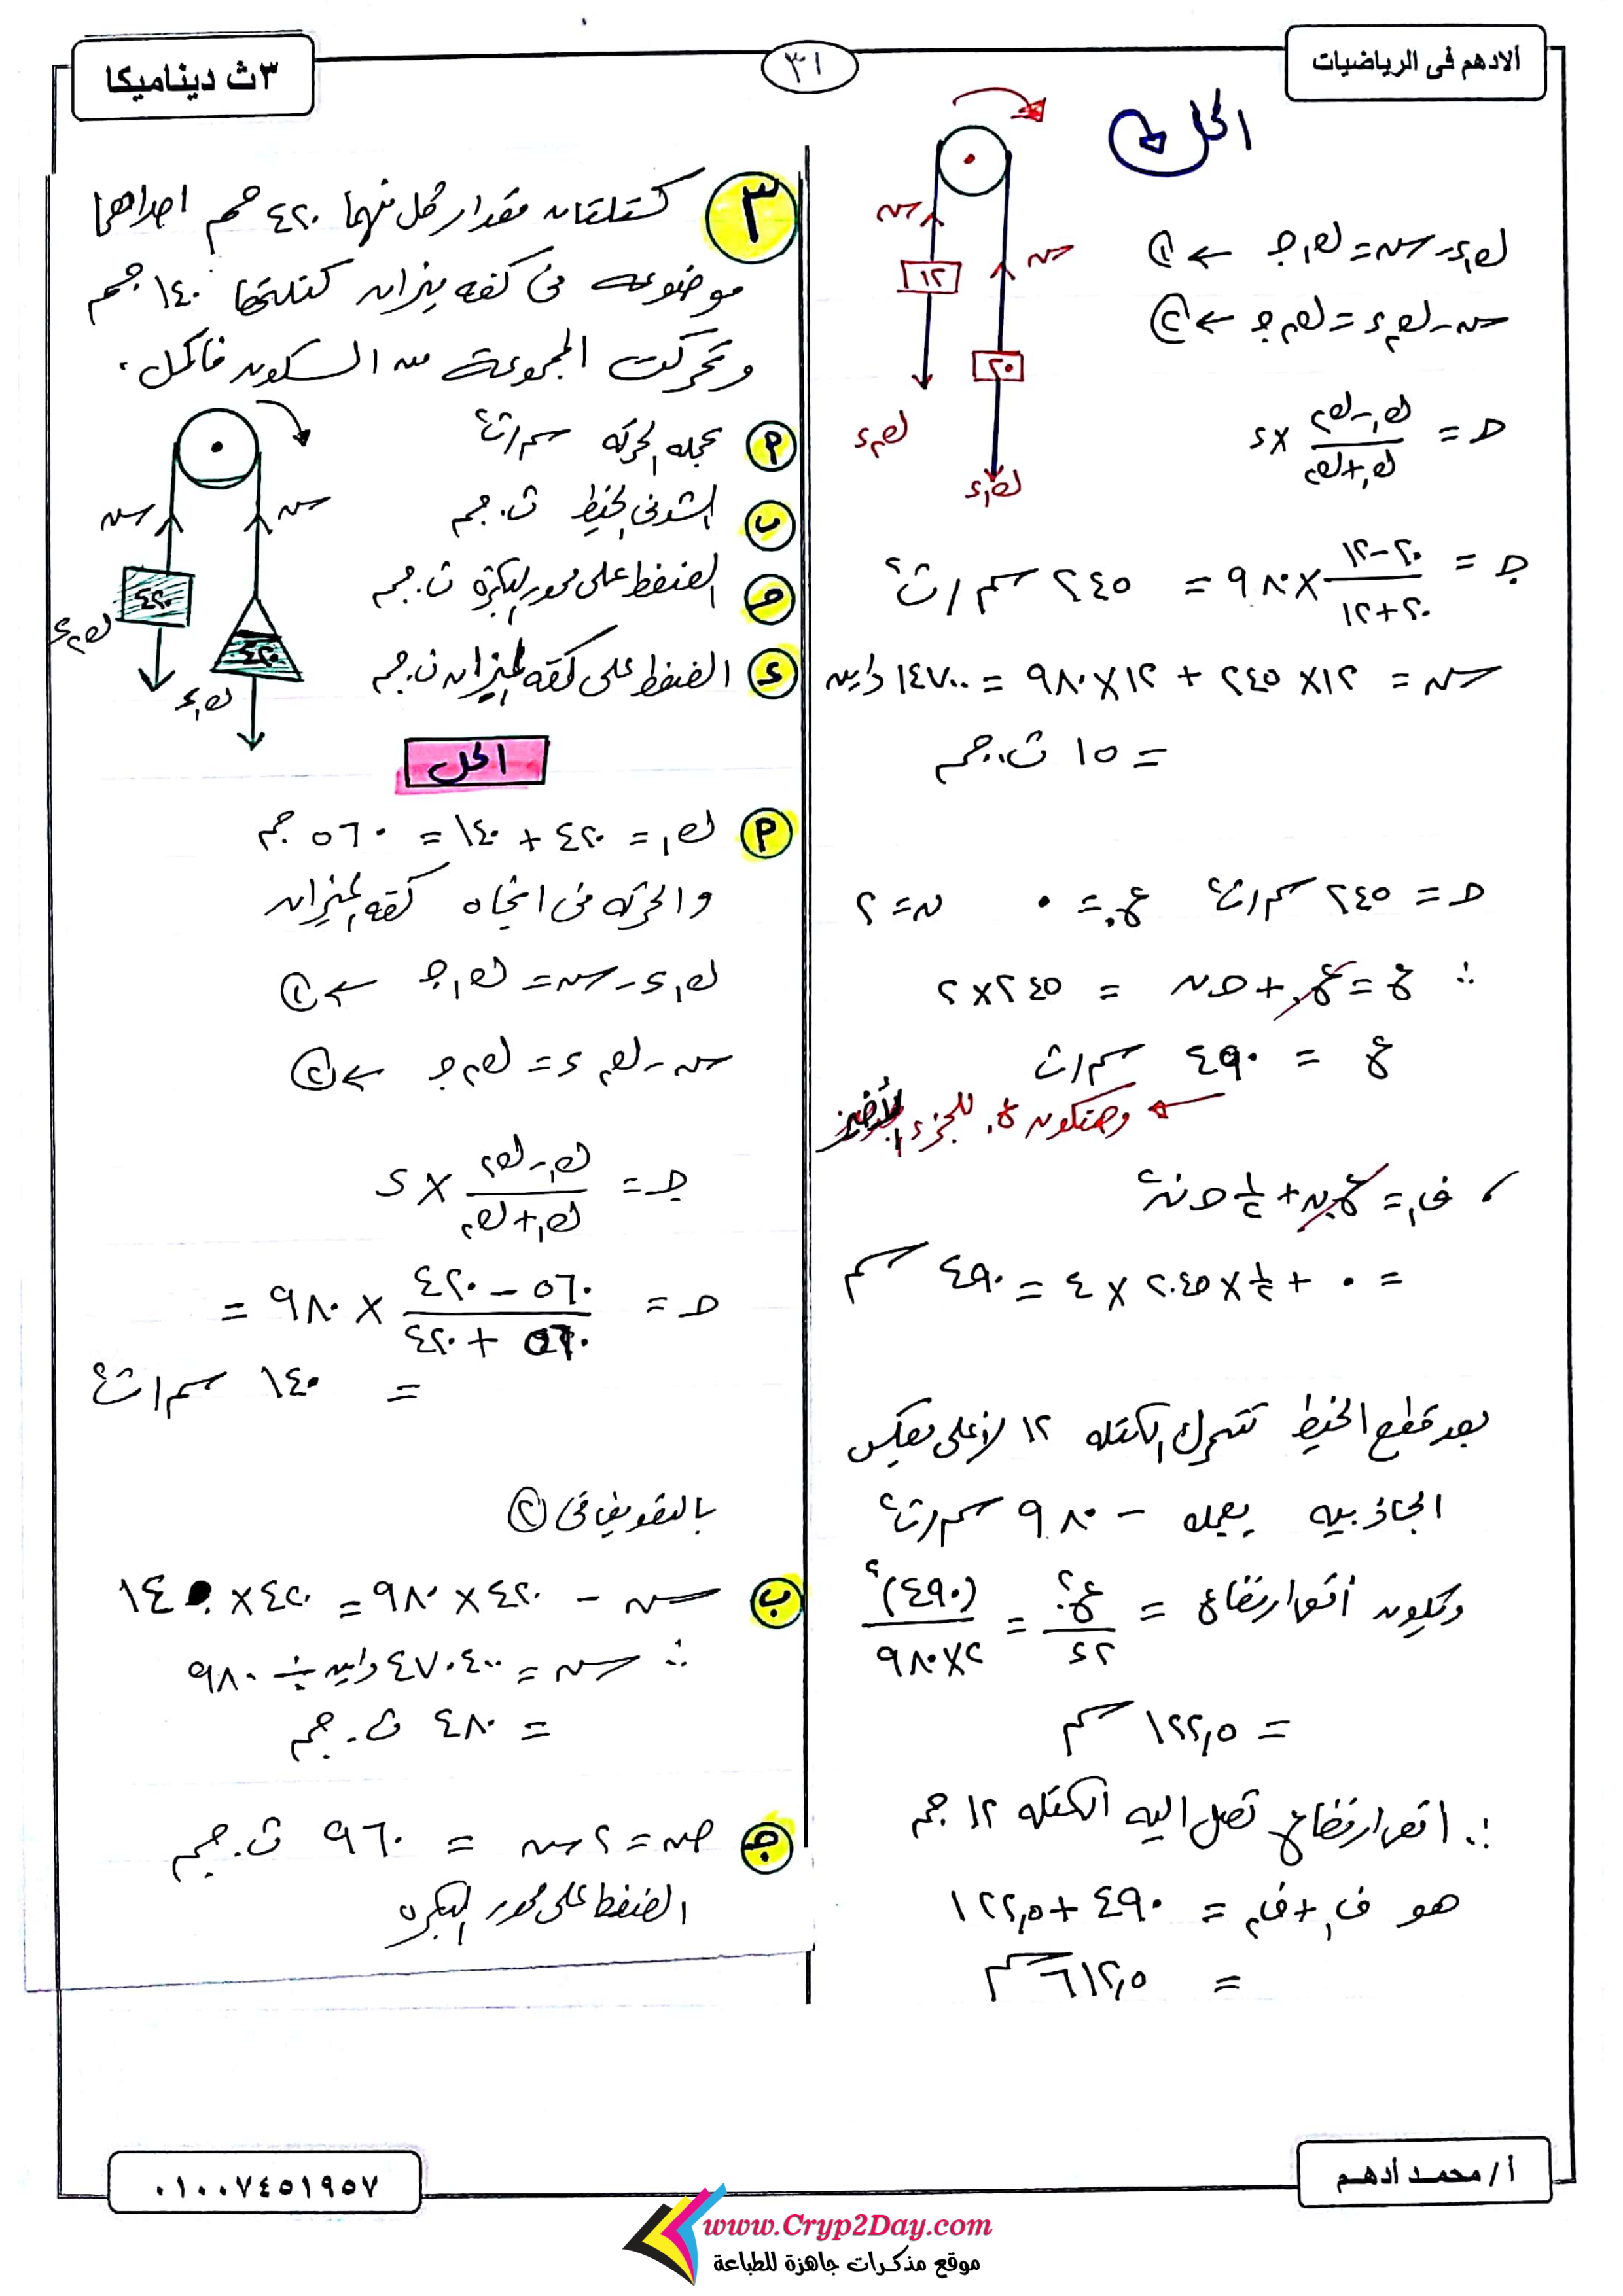 الادهم فى الرياضيات
٣١
٣ث ديناميكا
الحل
١٢
٢٠
ك١ء
ك٢ء
ك١ء - سہ = ك١جـ ← ①
سہ - ك٢ء = ك٢جـ ← ②
حـ = (ك١ - ك٢)/(ك١ + ك٢) × ء
جـ = (٢٠ - ١٢)/(٢٠ + ١٢) × ٩٨٠ = ٢٤٥ سم/ث٢
سہ = ١٢ × ٢٤٥ + ١٢ × ٩٨٠ = ١٤٧٠٠ داين
= ١٥ ث.جم
حـ = ٢٤٥ سم/ث٢ ع. = ٠ ن = ٢
∴ ع = ع. + حـ ن = ٢٤٥ × ٢
ع = ٤٩٠ سم/ث
← وهتكون ع. للجزء الأخير
، ف١ = ع.ن + ١/٢ حـ ن٢
= ٠ + ١/٢ × ٢٤٥ × ٤ = ٤٩٠ سم
بعد قطع الخيط تتحرك الكتله ١٢ لأعلى بعكس
الجاذبيه بعجله - ٩٨٠ سم/ث٢
وتكون أقصى ارتفاع = ع.٢/٢ء = (٤٩٠)٢/(٢×٩٨٠)
= ١٢٢,٥ سم
∴ اقصى ارتفاع تصل اليه الكتله ١٢ جم
هو ف١ + ف٢ = ٤٩٠ + ١٢٢,٥
= ٦١٢,٥ سم
٣ كتلتان مقدار كل منهما ٤٢٠ جم احداهما
موضوعه فى كفه ميزان كتلتها ١٤٠ جم
وتحركت المجموعة من السكون فاكمل .
أ عجله الحركه سم/ث٢
ب الشد فى الخيط ث.جم
حـ الضغط على محور البكره ث.جم
ء الضغط على كفه الميزان ث.جم
سہ
سہ
٤٢٠
٤٢٠
ك٢ء
ك١ء
الحل
أ ك١ = ٤٢٠ + ١٤٠ = ٥٦٠ جم
والحركه فى اتجاه كفه الميزان
ك١ء - سہ = ك١جـ ← ①
سہ - ك٢ء = ك٢جـ ← ②
جـ = (ك١ - ك٢)/(ك١ + ك٢) × ء
حـ = (٥٦٠ - ٤٢٠)/(٥٦٠ + ٤٢٠) × ٩٨٠ =
= ١٤٠ سم/ث٢
بالتعويض فى ②
ب سہ - ٤٢٠ × ٩٨٠ = ٤٢٠ × ١٤٠
∴ سہ = ٤٧٠٤٠٠ داين ÷ ٩٨٠
= ٤٨٠ ث.جم
جـ ضہ = ٢سہ = ٩٦٠ ث.جم
الضغط على محور البكره
أ / محمد أدهم
٠١٠٠٧٤٥١٩٥٧
www.Cryp2Day.com
موقع مذكرات جاهزة للطباعة